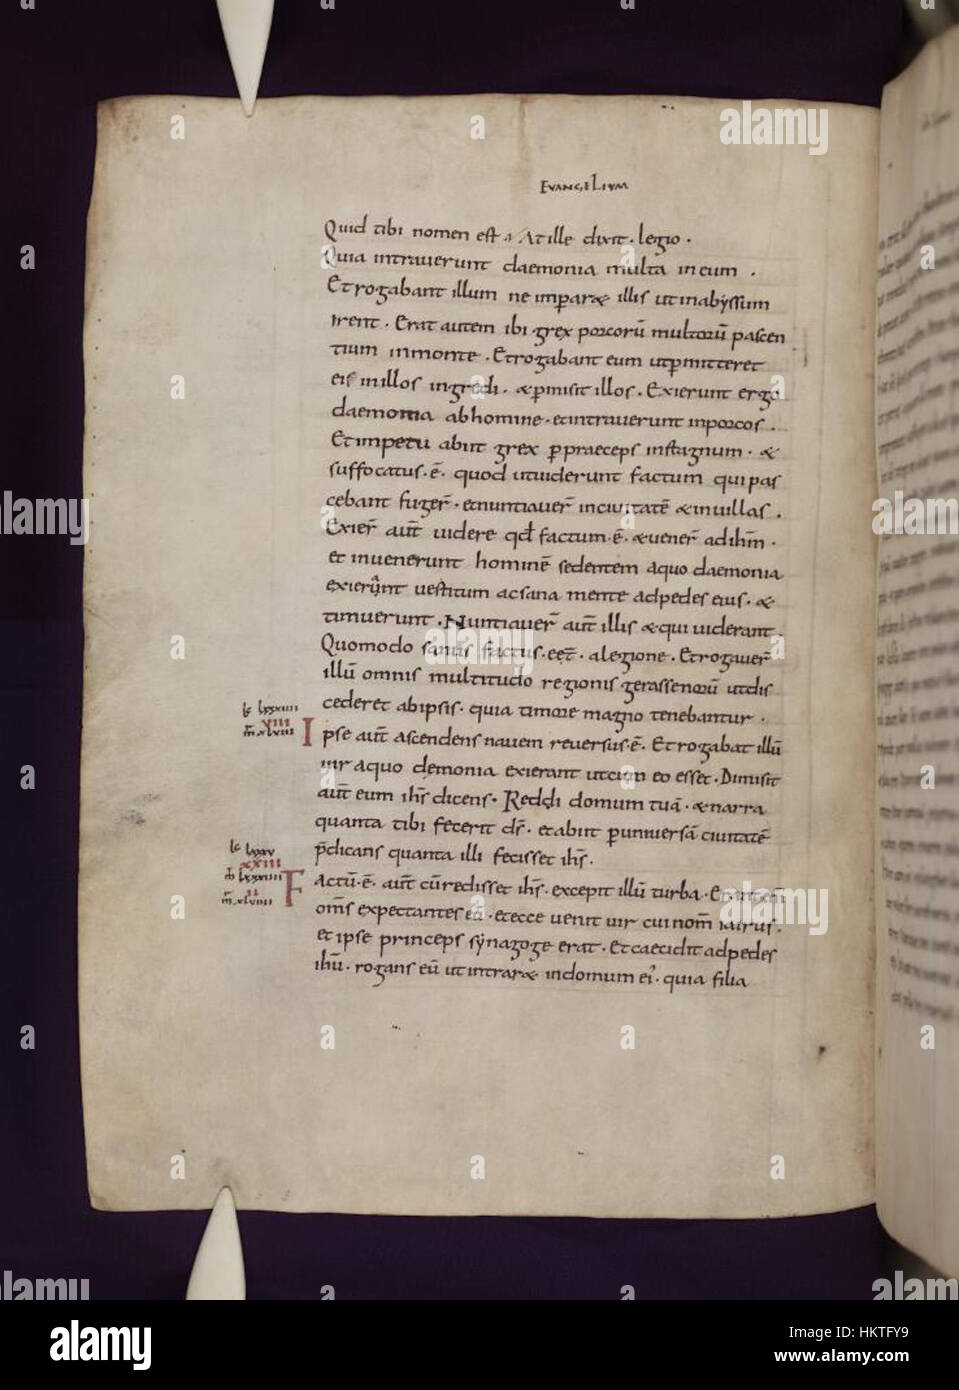 EVANGELIVM
Quid tibi nomen est. At ille dixit. legio.
Quia intrauerunt daemonia multa in eum.
Et rogabant illum ne imperaret illis ut in abyssum
irent. Erat autem ibi grex porcorū multorū pascen
tium in monte. Et rogabant eum ut p̄mitteret
eis in illos ingredi. & p̄misit illos. Exierunt ergo
daemonia ab homine. et intrauerunt in porcos.
Et impetu abiit grex p̄ praeceps in stagnum. &
suffocatus.ē. quod ut uiderunt factum qui pas
cebant fuger̄. et nuntiauer̄ in ciuitatē & in uillas.
Exier̄ aut̄ uidere qd̄ factum.ē. & uener̄ ad ihm̄.
et inuenerunt hominē sedentem a quo daemonia
exierunt uestitum ac sana mente ad pedes eius. &
timuerunt. Nuntiauer̄ aut̄ illis & qui uiderant.
Quomodo sanus factus.eēt. a legione. Et rogauer̄
illū omnis multitudo regionis gerassenorū ut dis
cederet ab ipsis. quia timore magno tenebantur.
lc lxxxiiii
viii
m̄ xlviii
Ipse aut̄ ascendens nauem reuersus.ē. Et rogabat illū
uir a quo demonia exierant ut cum eo esset. Dimisit
aut̄ eum ihs̄ dicens. Reddi domum tuā. & narra
quanta tibi fecerit ds̄. et abiit p̄ uniuersā ciuitatē
p̄dicans quanta illi fecisset ihs̄.
lc lxxxv
xxiii
m̄ lxxiiii
ii
m̄ xlviiii
Factū.ē. aut̄ cū redisset ihs̄. excepit illū turba. Erant eni᷎m
oms̄ expectantes eū. et ecce uenit uir cui nom̄ iairus.
et ipse princeps synagoge erat. Et caecidit ad pedes
ihū. rogans eū ut intraret in domum ei'. quia filia
alamy
HKTFY9
www.alamy.com